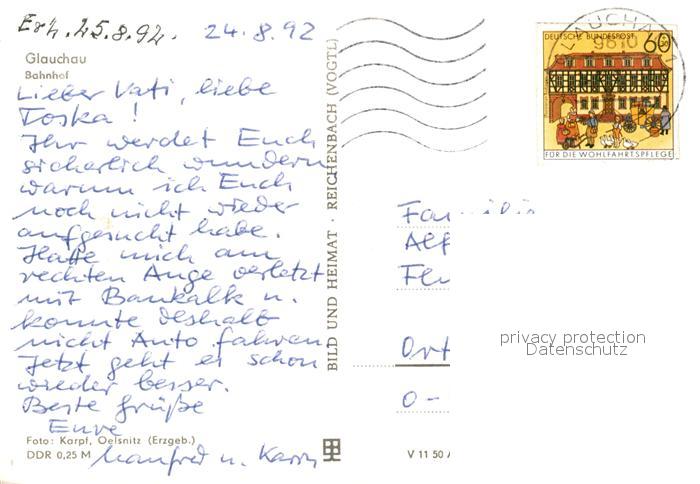 Erh. 25.8.92. 24.8.92
Glauchau
Bahnhof
Lieber Vati, liebe
Toska!
Ihr werdet Euch
sicherlich wundern
warum ich Euch
noch nicht wieder
aufgesucht habe.
Hatte mich am
rechten Auge verletzt
mit Baukalk u.
konnte deshalb
nicht Auto fahren
Jetzt geht es schon
wieder besser.
Beste Grüße
Eure
Manfred u.
Foto: Karpf, Oelsnitz (Erzgeb.)
DDR 0,25 M
BILD UND HEIMAT · REICHENBACH (VOGTL)
V 11 50
GLAUCHAU 1
9610
DEUTSCHE BUNDESPOST 60
FÜR DIE WOHLFAHRTSPFLEGE
Familie
Alf
Ort
O-
privacy protection
Datenschutz